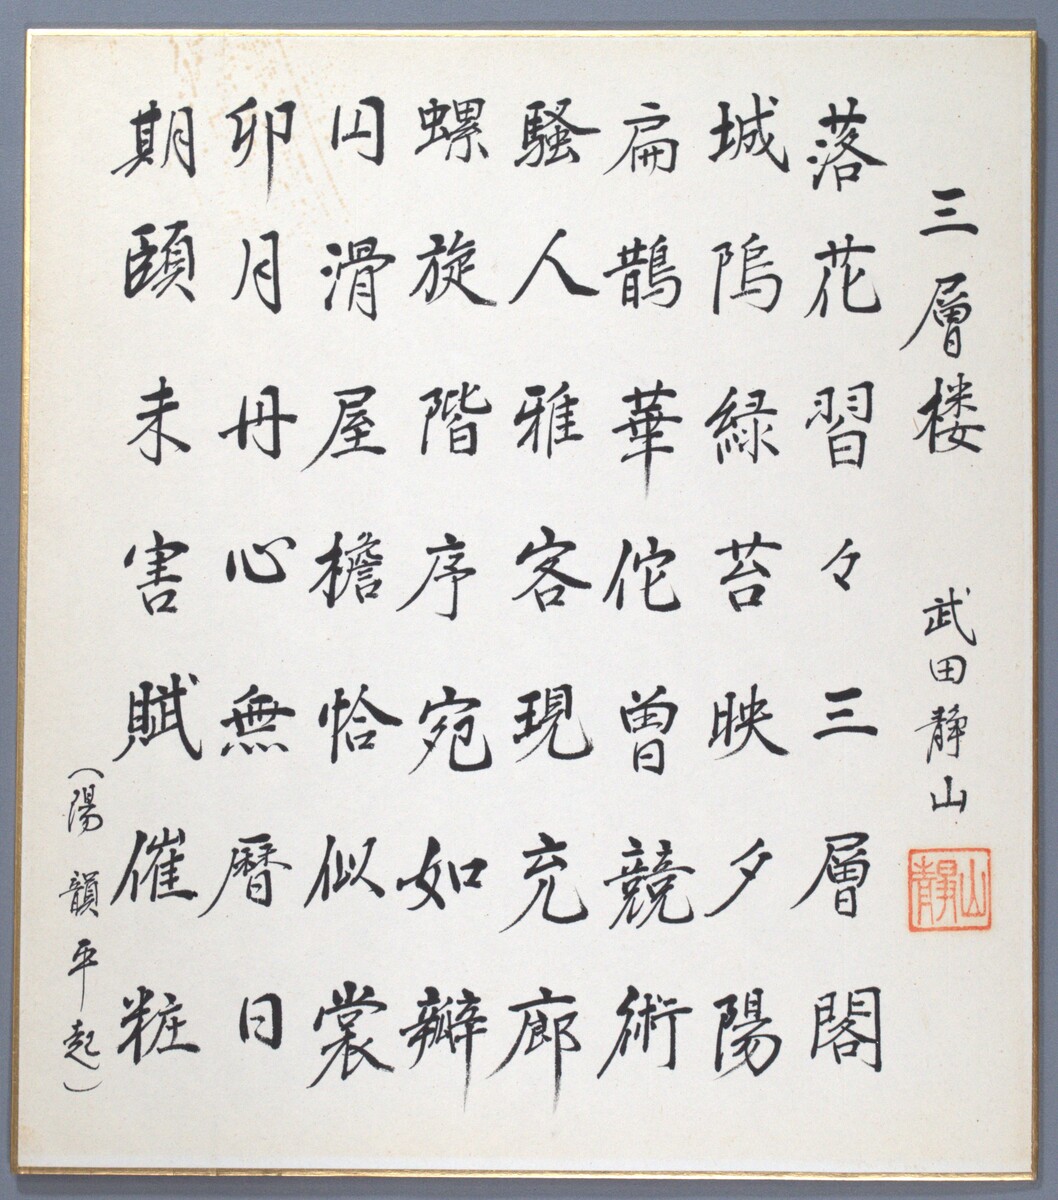 三層楼 武田静山
静山
落花習々三層閣
城隖緑苔映夕陽
扁鵲華佗曽競術
騒人雅客現充廊
螺旋階序宛如瓣
円滑屋檐恰似裳
卯月丹心無暦日
期頤未害賦催粧
(陽韻平起)